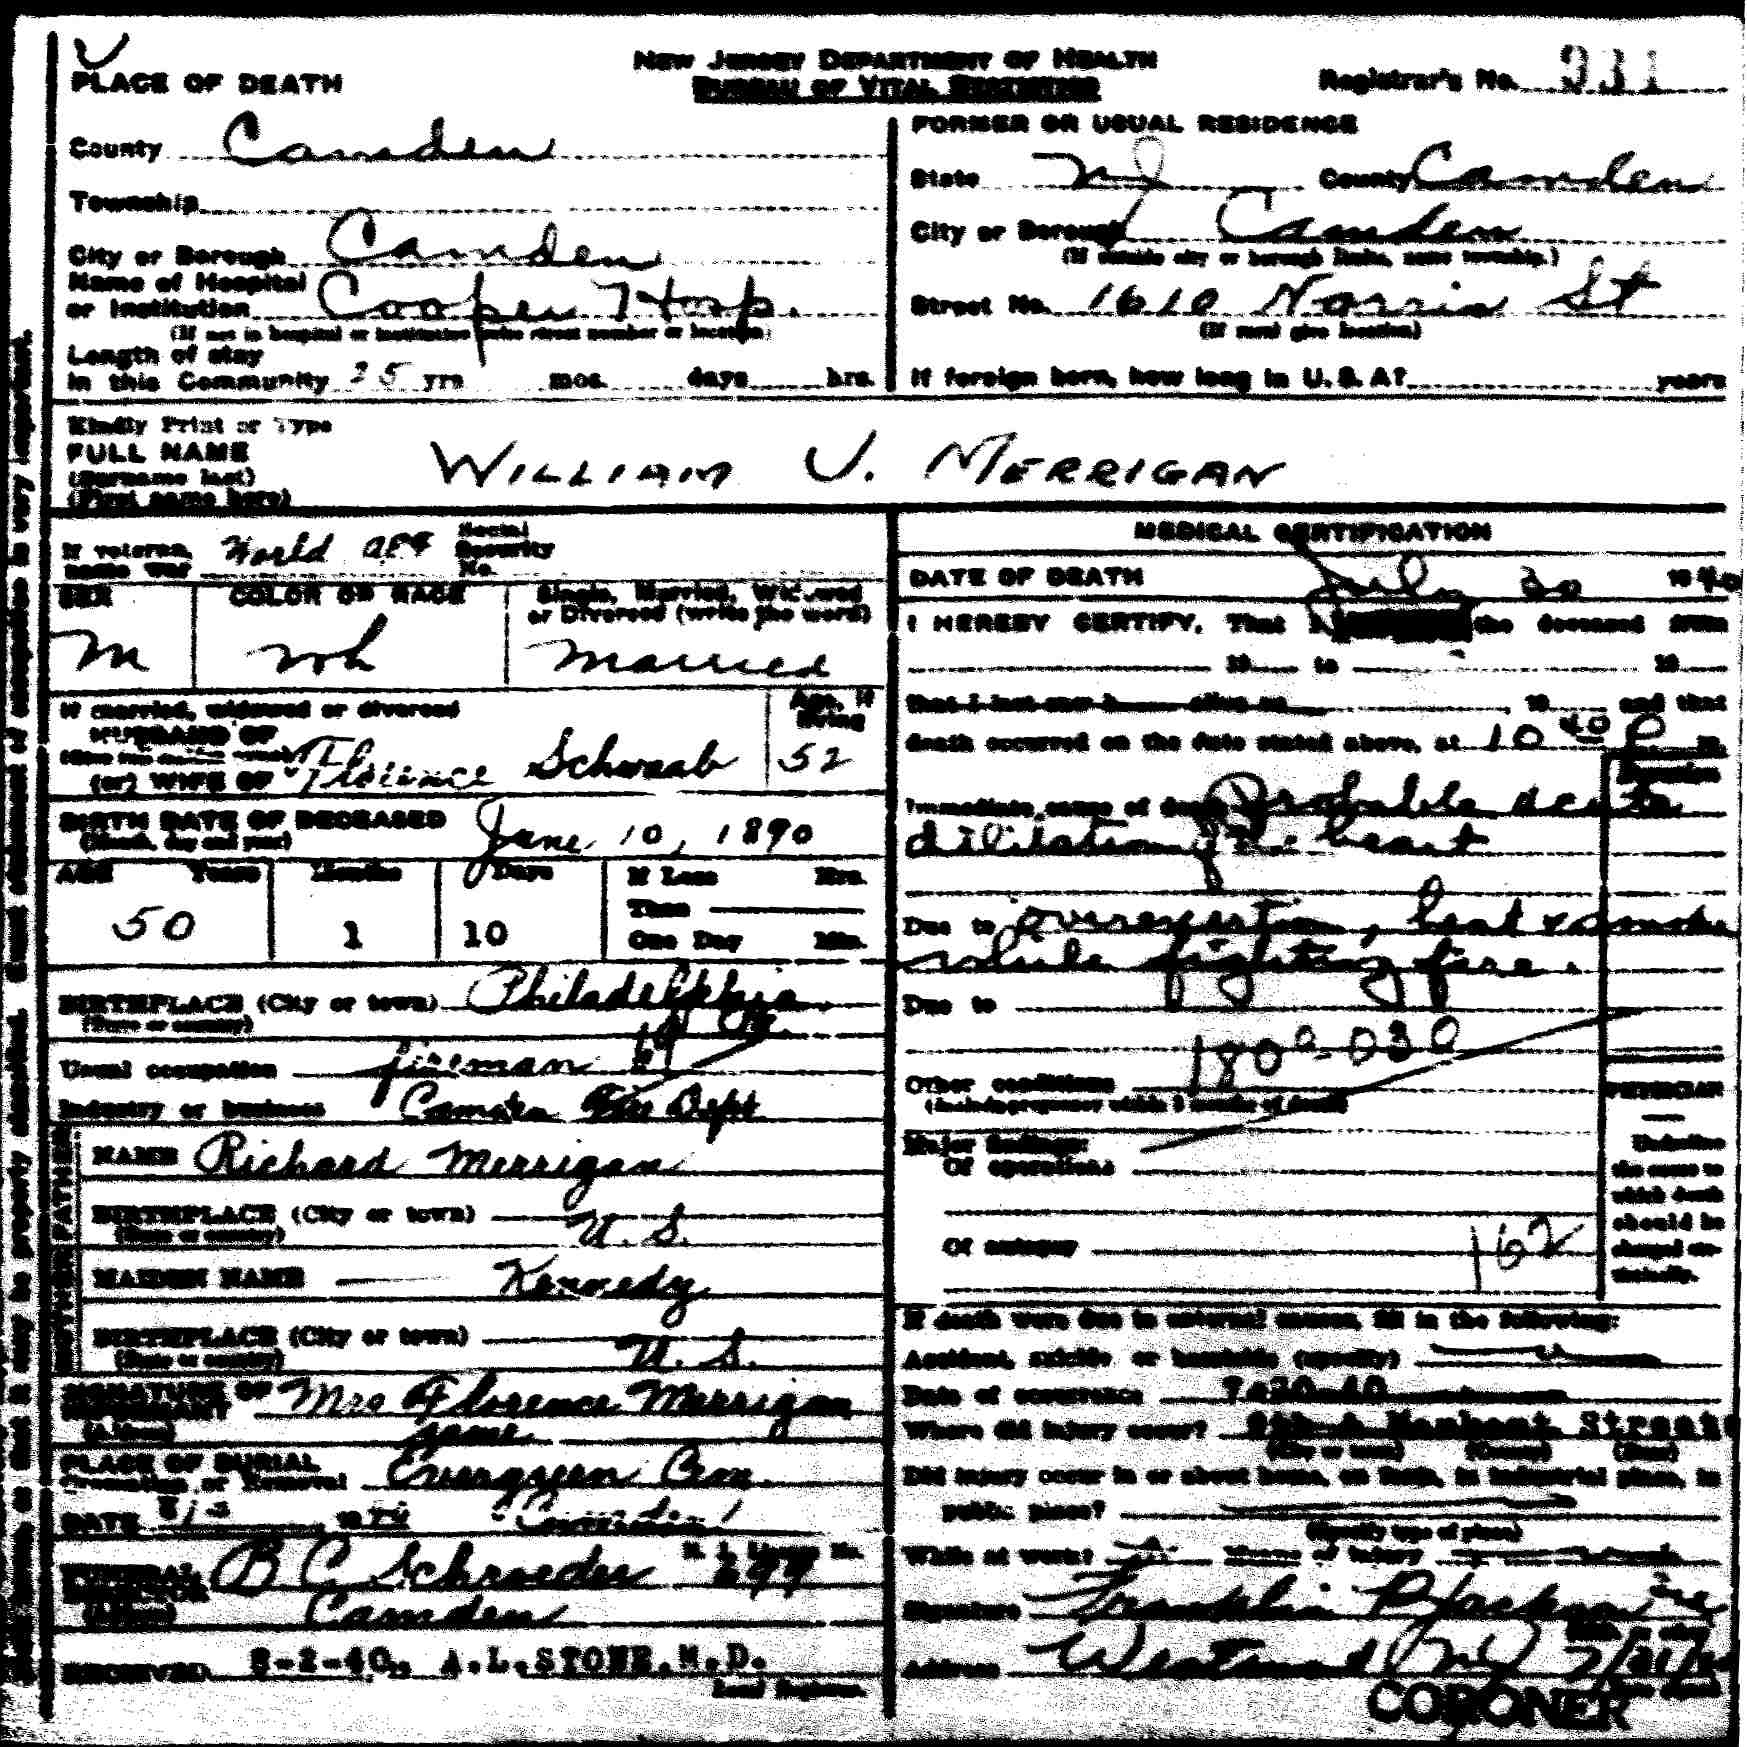 NEW JERSEY DEPARTMENT OF HEALTH
BUREAU OF VITAL STATISTICS
Registrar's No. 931
PLACE OF DEATH
County Camden
Township
City or Borough Camden
Name of Hospital
or Institution Cooper Hosp.
(If not in hospital or institution give street number or location)
Length of stay
in this Community 25 yrs mos. days hrs.
FORMER OR USUAL RESIDENCE
State NJ County Camden
City or Borough Camden
(If outside city or borough limits, name township.)
Street No. 1610 Norris St
(If rural give location)
If foreign born, how long in U. S. A? years
Kindly Print or Type
FULL NAME WILLIAM J. MERRIGAN
(Surname last)
(First name here)
If veteran, name war World
Social Security No.
SEX M
COLOR OR RACE Wh
Single, Married, Widowed
or Divorced (write the word)
Married
If married, widowed or divorced
HUSBAND OF
(or) WIFE OF Florence Schwaab
Age, if living 52
BIRTH DATE OF DECEASED June 10, 1890
(Month, day and year)
AGE Years 50 Months 1 Days 10
If Less Than One Day Hrs. Min.
BIRTHPLACE (City or town) Philadelphia
(State or country) Pa.
Usual occupation fireman
Industry or business Camden Fire Dept
FATHER
NAME Richard Merrigan
BIRTHPLACE (City or town)
(State or country) U. S.
MOTHER
MAIDEN NAME Kennedy
BIRTHPLACE (City or town)
(State or country) U. S.
SIGNATURE OF
INFORMANT Mrs Florence Merrigan
(Address) same
PLACE OF BURIAL
Cremation or Removal Evergreen Cem.
DATE 19 Camden
FUNERAL DIRECTOR B C Schroeder
N. J. License No.
(Address) Camden
RECEIVED 8-2-40, A.L.STONE.M.D.
Local Registrar.
MEDICAL CERTIFICATION
DATE OF DEATH July 30 1940
I HEREBY CERTIFY, That I the deceased from
19 to 19
that I last saw h alive on 19 and that
death occurred on the date stated above, at 10 40 P m.
Duration
Immediate cause of death Probable acute
dilitation of the heart
Due to overexertion, heat & smoke
while fighting fire.
Due to
180a-030
Other conditions
(include pregnancy within 3 months of death)
Major findings:
Of operations
Of autopsy
162
PHYSICIAN
Underline
the cause to
which death
should be
charged sta-
tistically.
If death were due to external causes, fill in the following:
Accident, suicide or homicide (specify)
Date of occurrence 7-30-40
Where did injury occur? Street
(City or town) (County) (State)
Did injury occur in or about home, on farm, in industrial place, in
public place?
(Specify type of place)
While at work? Means of injury
Signature Franklin P Jackson
Address Westmont NJ 7/31/40
CORONER